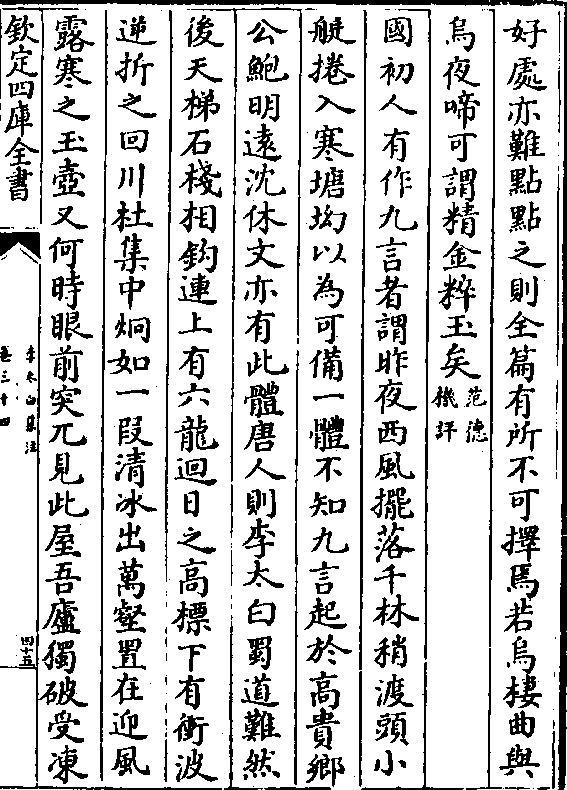 好處亦難點點之則全篇有所不可擇焉若烏棲曲與
烏夜啼可謂精金粹玉矣范德機評
國初人有作九言者謂昨夜西風擺落千林稍渡頭小
艇捲入寒塘坳以為可備一體不知九言起於高貴鄉
公鮑明遠沈休文亦有此體唐人則李太白蜀道難然
後天梯石棧相鈎連上有六龍迴日之高標下有衝波
逆折之回川杜集中炯如一段清冰出萬壑置在迎風
露寒之玉壺又何時眼前突兀見此屋吾廬獨破受凍
欽定四庫全書
李太白集注
卷三十四
四十五